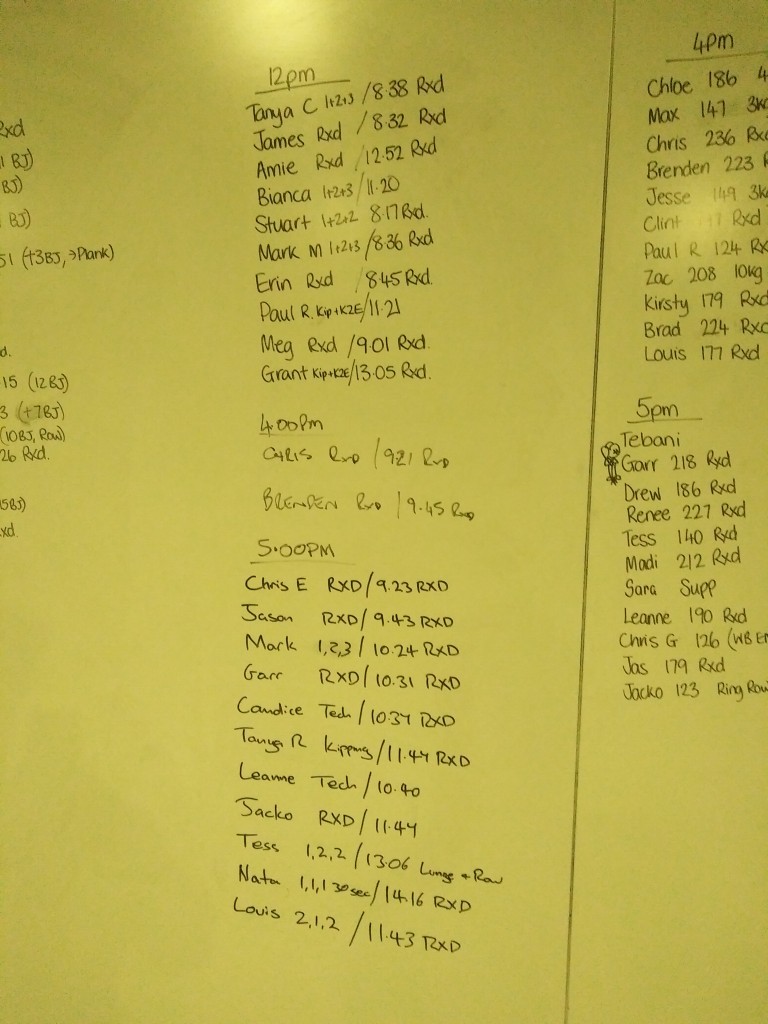 Rxd
1 BJ)
BJ)
BJ)
51 (+3BJ, →Plank)
d.
15 (12BJ)
3 (+7BJ)
(10BJ, Row)
26 Rxd.
5BJ)
xd.
12pm
Tanya C 1+2+3 / 8.38 Rxd
James Rxd / 8.32 Rxd
Amie Rxd / 12.52 Rxd
Bianca 1+2+3 / 11.20
Stuart 1+2+2 8.17 Rxd.
Mark M 1+2+3 / 8.36 Rxd
Erin Rxd / 8.45 Rxd.
Paul R. Kip+K2E / 11.21
Meg Rxd / 9.01 Rxd.
Grant Kip+K2E / 13.05 Rxd.
4.00pm
CHRIS RxD / 9.21 RxD
BRENDEN RxD / 9.45 RxD
5.00PM
Chris E RXD / 9.23 RXD
Jason RXD / 9.43 RXD
Mark 1,2,3 / 10.24 RXD
Garr RXD / 10.31 RXD
Candice Tech / 10.37 RXD
Tanya R Kipping / 11.47 RXD
Leanne Tech / 10.40
Jacko RXD / 11.47
Tess 1,2,2 / 13.06 Lunge + Row
Nata 1,1,1 30sec / 14.16 RXD
Louis 2,1,2 / 11.43 RXD
4pm
Chloe 186 4
Max 147 3kg
Chris 236 Rxd
Brenden 223 R
Jesse 149 3kg
Clint Rxd
Paul R 124 Rx
Zac 208 10kg
Kirsty 179 Rxd
Brad 224 Rxd
Louis 177 Rxd
5pm
Tebani
Garr 218 Rxd
Drew 186 Rxd
Renee 227 Rxd
Tess 140 Rxd
Madi 212 Rxd
Sara Supp
Leanne 190 Rxd
Chris G 126 (WB E
Jas 179 Rxd
Jacko 123 Ring Row